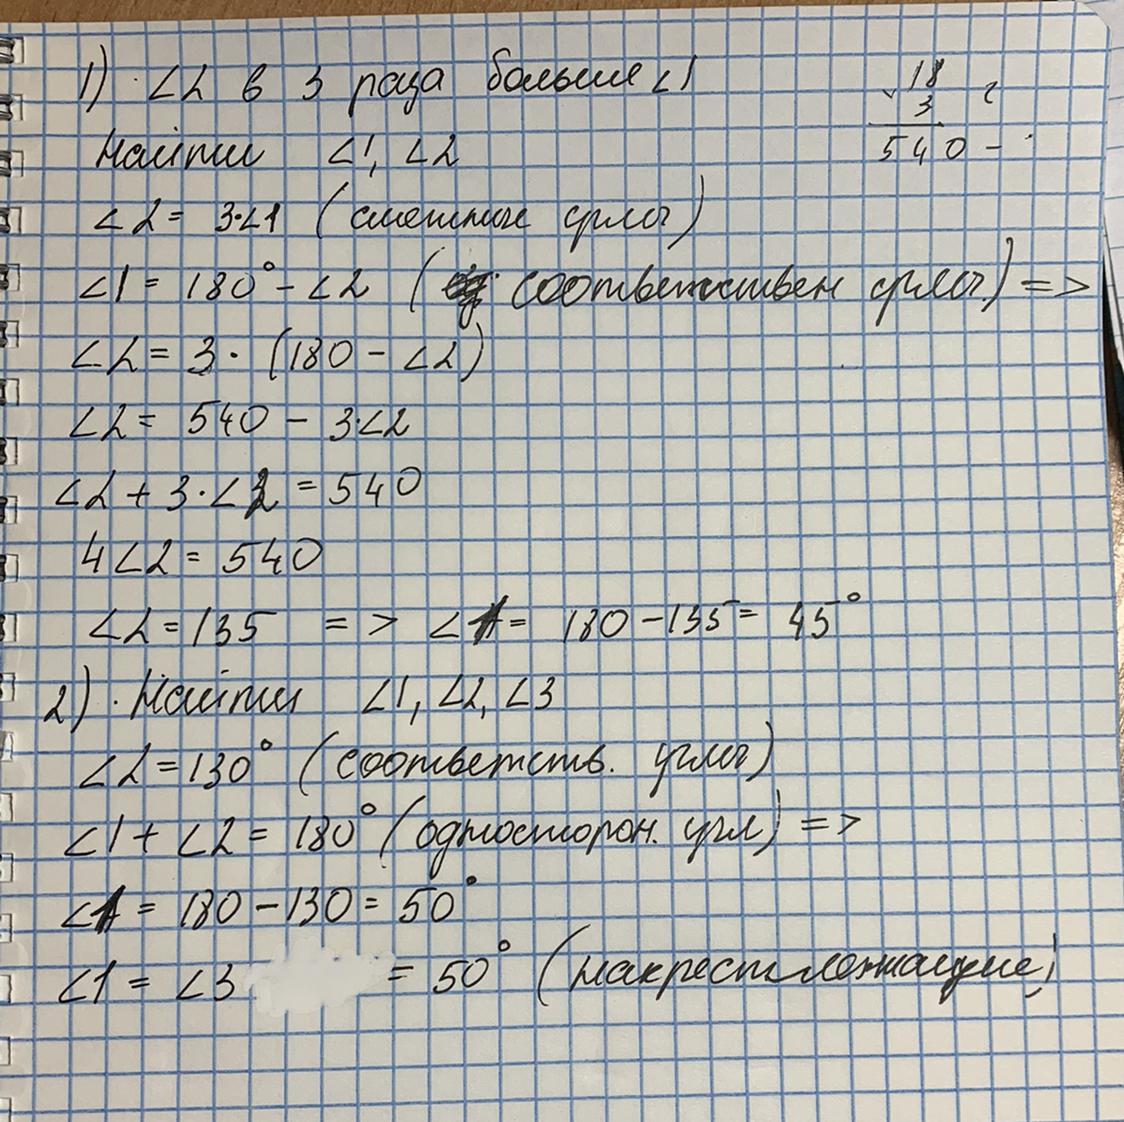 1) ∠2 в 3 раза больше ∠1
18
3
540
Найти ∠1, ∠2
∠2 = 3·∠1 (смежные углы)
∠1 = 180° - ∠2 ( соответствен углы) =>
∠2 = 3 · (180 - ∠2)
∠2 = 540 - 3·∠2
∠2 + 3·∠2 = 540
4∠2 = 540
∠2 = 135 => ∠1 = 180 - 135 = 45°
2) Найти ∠1, ∠2, ∠3
∠2 = 130° (соответств. углы)
∠1 + ∠2 = 180° (односторон. угл) =>
∠1 = 180 - 130 = 50°
∠1 = ∠3 = 50° (накрест лежащие)